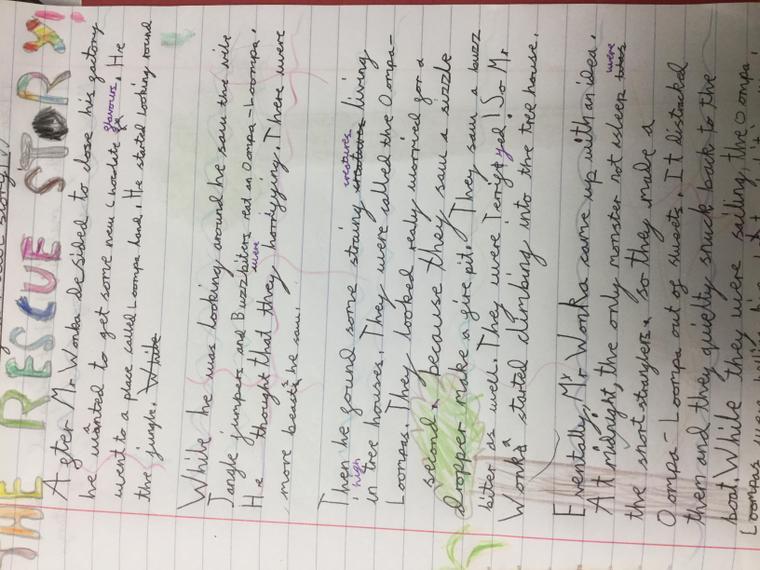 story!!
THE RESCUE STORY!
After Mr Wonka desided to close his factory
he wanted to get some new chocolate flavours. He
went to a place called Loompa land. He started looking round
the jungle. While
While he was looking around he saw the vile
Jangle jumpers and Buzzbiters eat an Oompa-Loompa.
He thought that they were horrifying. There were
more beasts he saw.
Then he found some straing creatures creatures living
high
in tree houses. They were called the Oompa-
Loompa. They looked realy worried for a
second, because they saw a sizzle
dropper make a fire pit. They saw a buzz
biter as well. They were Terrifyed! So Mr
Wonka started climbing into the tree house.
Eventally, Mr Wonka came up with an idea.
At midnight, the only monster not asleep were
the snot stranglers so they make a
Oompa-Loompa out of sweets. It distracted
them and they quietly snuck back to the
boat. While they were sailing, the Oompa
Loompas were telling him